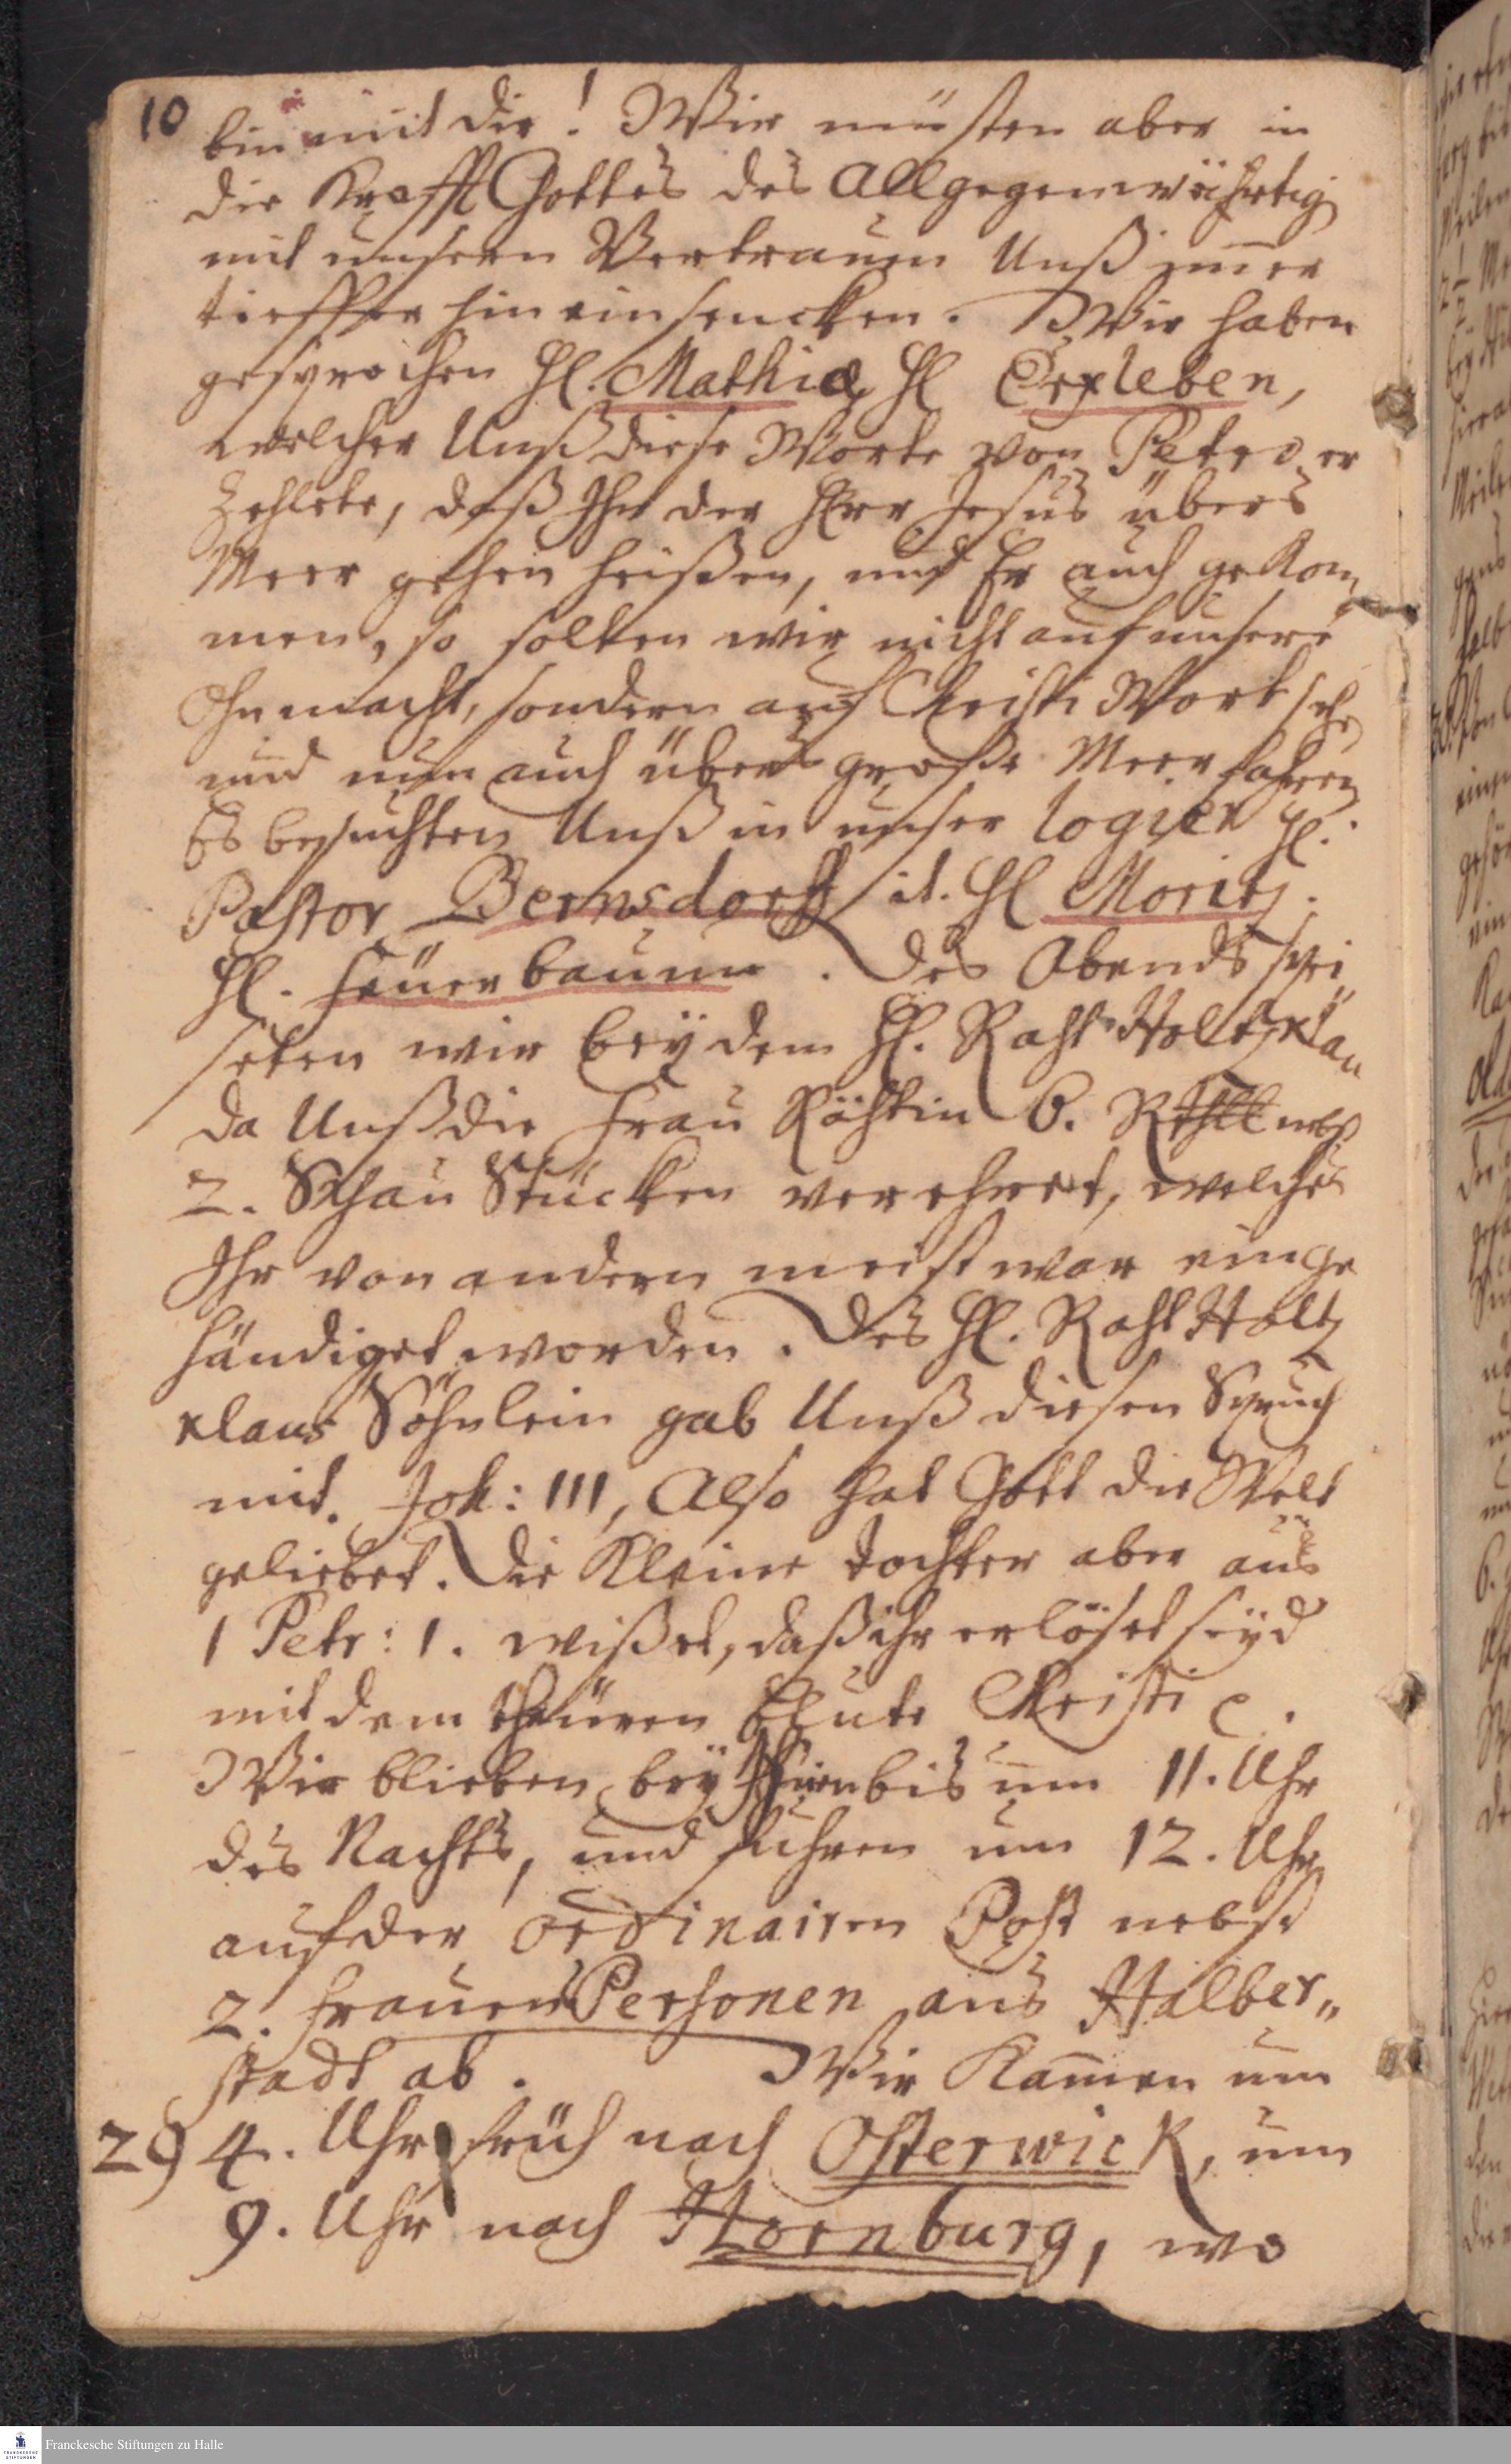 10
bin mit dir! Wir müsten aber in
die Krafft Gottes des Allgegenwährtig
mit unsern Vertrauen Unß immer
tieffer hinein sencken. Wir haben
gesprochen Hl. Mathiæ, Hl Erxleben,
welcher Unß diese Worte von Petro er
zehlete, daß Ihn der Herr Jesus übers
Meer gehen heißen, und Er auch gekom
men, so solten wir nicht auf unsere
Ohnmacht, sondern auf Christi Wort sehe
und nun auch übers große Meer fahren
Es besuchten Unß in unser logier Hl.
Pastor Bernsdorff it. Hl Moritz.
Hl. Feuerbaum. Des Abends spei
seten wir bey dem Hl. Raht Holtzklau
da Unß die Frau Räthin 6. Rthll nebst
2. Schau Stücken verehret, welches
Ihr von andern meist war einge
händiget worden. Des Hl. Raht Holtz
klaus Söhnlein gab Unß diesen Spruch
mit. Joh: III, Also hat Gott die Welt
geliebet. Die Kleine tochter aber aus
1 Petr: 1. wißet, daß ihr erlöset seyd
mit dem theuren Blute Christi .
Wir blieben bey Ihnen bis um 11. Uhr
des Nachts, und fuhren um 12. Uhr
auf der ordinairen Post nebst
2. Frauens Personen aus Halber„
stadt ab. Wir kamen um
29 4. Uhr früh nach Osterwick, um
9. Uhr nach Hornburg, wo
Franckesche Stiftungen zu Halle